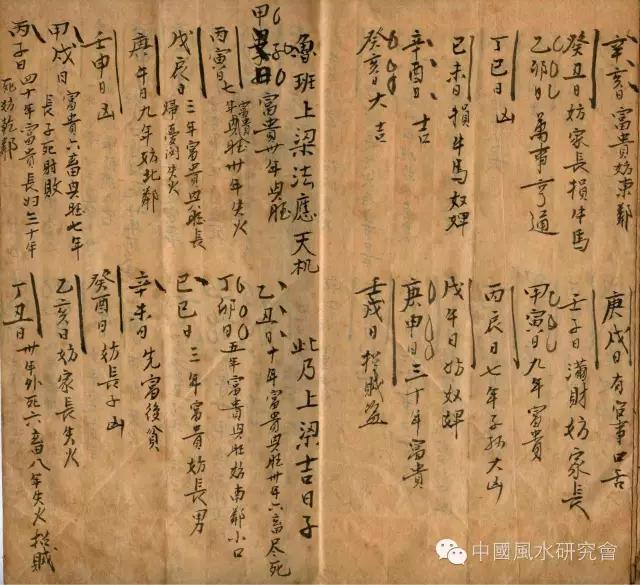 辛亥日富貴妨東鄰
庚戌日有官事口舌
癸丑日妨家長損牛馬
壬子日滿財妨家長
乙卯日萬事亨通
甲寅日九年富貴
丁巳日凶
丙辰日七年子孫大凶
己未日損牛馬奴婢
戊午日妨奴婢
辛酉日吉
庚申日三十年富貴
癸亥日大吉
壬戌日招賊盜
魯班上梁法應天机 此乃上梁吉日子
甲子日富貴卅年興旺
乙丑日十年富貴興旺卅年六畜尽死
丙寅日七年興旺卅年失火
丁卯日五年富貴興旺妨南鄰小口
戊辰日三年富貴興旺長婦憂閙失火
己巳日三年富貴妨長男
庚午日九年妨北鄰
辛未日先富後貧
壬申日凶
癸酉日妨長子凶
甲戌日富貴六畜興旺七年長子死財敗
乙亥日妨家長失火
丙子日四十年富貴長妇三十年死妨乾鄰
丁丑日卅年外死六畜八年失火招賊
中國風水研究會